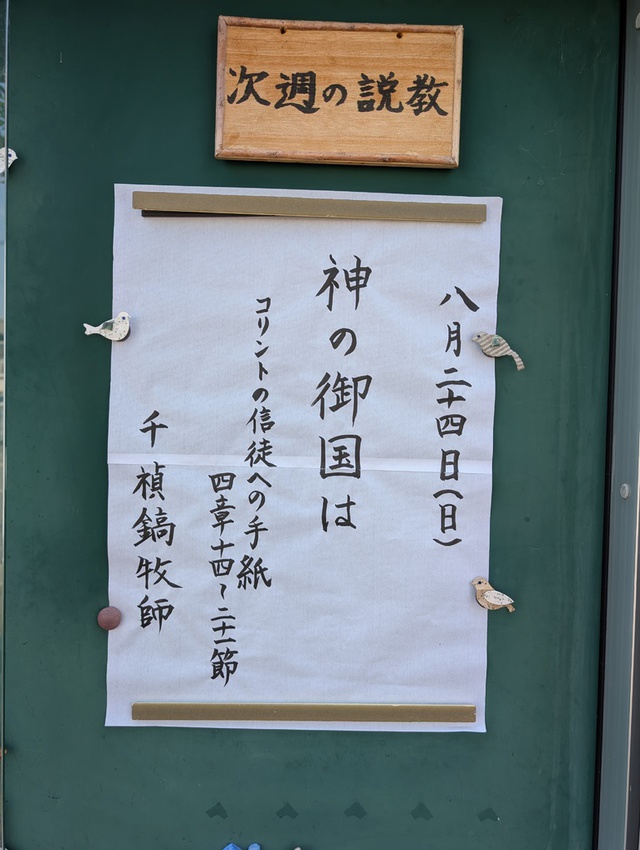 次週の説教
八月二十四日(日)
神の御国は
コリントの信徒への手紙
四章十四〜二十一節
千禎鎬牧師